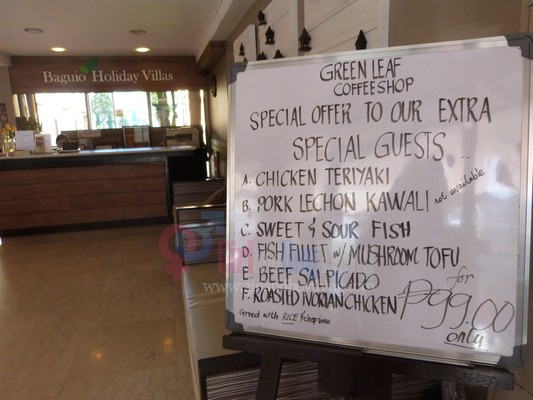 Baguio Holiday Villas
GREEN LEAF
COFFEESHOP
SPECIAL OFFER TO OUR EXTRA
SPECIAL GUESTS..
A. CHICKEN TERIYAKI
B. PORK LECHON KAWALI not available
C. SWEET & SOUR FISH
D. FISH FILLET w/ MUSHROOM TOFU
E. BEEF SALPICADO
F. ROASTED IVORIAN CHICKEN
for
₱99.00
only
served with RICE &